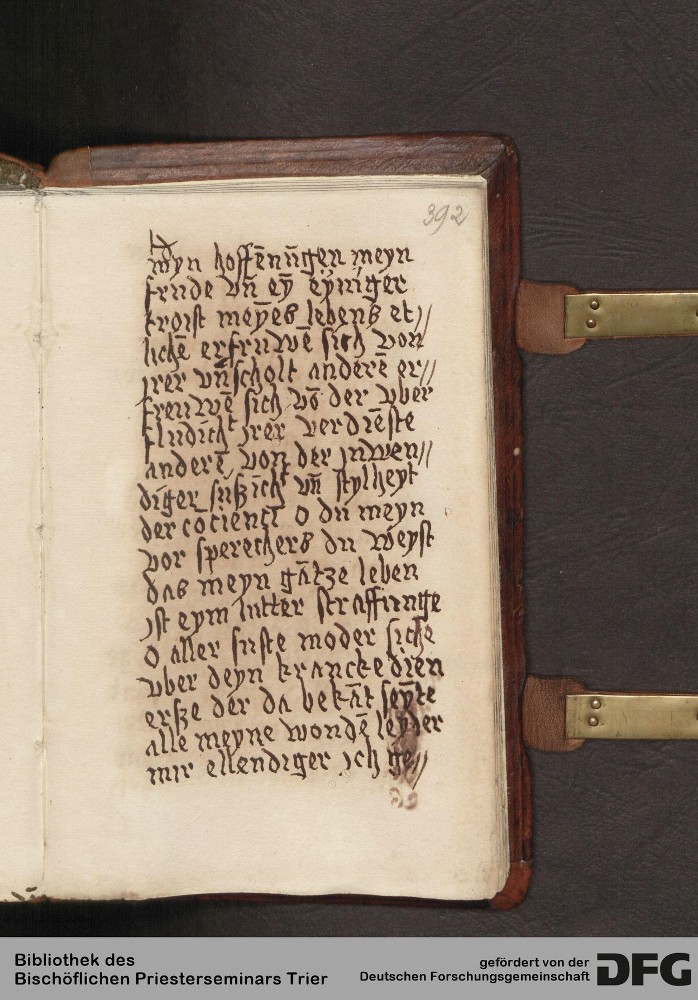 392
myn hoffenu̅gen meyn
frude vn̅ ey̅ eyniger
troist mey̅es lebens et//
liche̅ erfruwe̅ sich von
jrer vn̅scholt andere̅ er//
freuwe̅ sich vo̅ der vber
fludicht jrer verdie̅ste
andere̅ von der jnwen//
diger susz icht vn̅ stylheyt
der co̅cienci O du meyn
vor sperechers du weyst
das meyn ga̅tze leben
ist eym lutter straffunge
O aller suste moder siche
vber deyn krancke dien
ersze der da beka̅t seyte
alle meyne wonde̅ leyder
mir ellendiger jch ge//
Bibliothek des
Bischöflichen Priesterseminars Trier
gefördert von der
Deutschen Forschungsgemeinschaft
DFG